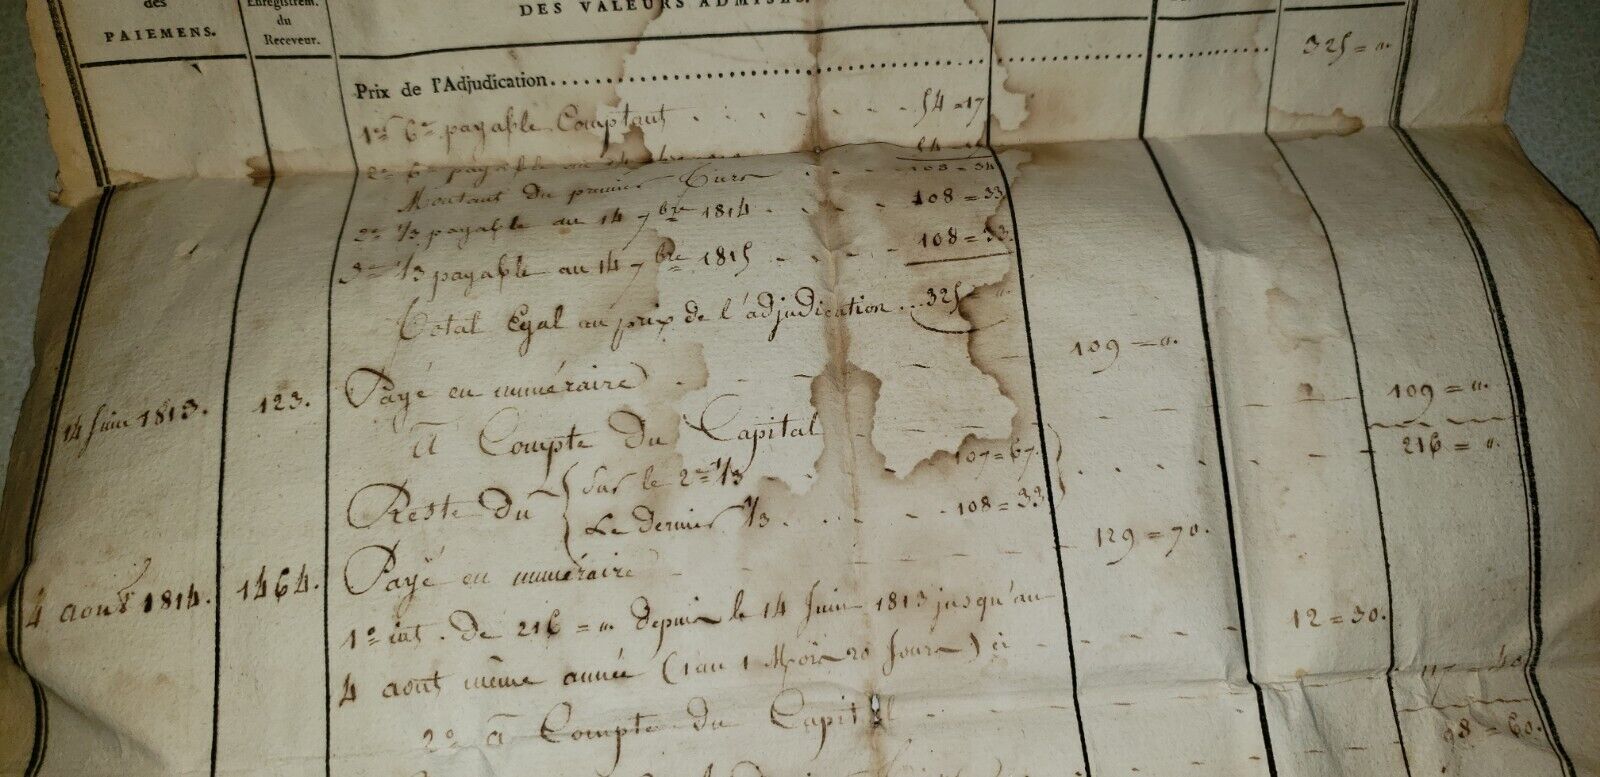 des
PAIEMENS.
Enregistrem.
du
Receveur.
DES VALEURS ADMISES.
Prix de l'Adjudication 325 = "
1er 6e payable Comptant 54 = 17
2e 6e payable
Montant du premier Tiers 108 = 34
2e 1/3 payable au 14 7bre 1814 108 = 33
3e 1/3 payable au 14 7bre 1815 108 = 33.
Total Egal au prix de l'adjudication 325 = "
14 Juin 1813. 123. Payé en numéraire 109 = ".
à Compte du Capital 109 = ".
Reste du { Sur le 2e 1/3 107 = 67. } 216 = ".
Le Dernier 1/3 108 = 33
4 aout 1814. 1464. Payé en numéraire 129 = 70.
1º int. de 216 = " depuis le 14 Juin 1813 jusqu'au
4 aout même année (1 an 1 Mois 20 Jours) ci 12 = 30.
2º à Compte du Capital 117 = 40
98 = 60.